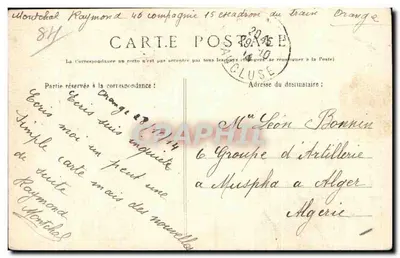 Montchal Raymond 46 compagnie 15 escadron du train Orange
84
CARTE POSTALE
VAUCLUSE
La Correspondance au recto n'est pas acceptée par tous les pays étrangers (Se renseigner à la Poste)
Partie réservée à la correspondance
Adresse du destinataire
Orange 28 14
Ecris suis inquiète
Ecris moi un peut une
simple carte mais des nouvelles
de suite
Raymond
Montchal
Mr Léon Bonnen
6 Groupe d'Artillerie
a Muspha a Alger
Algerie